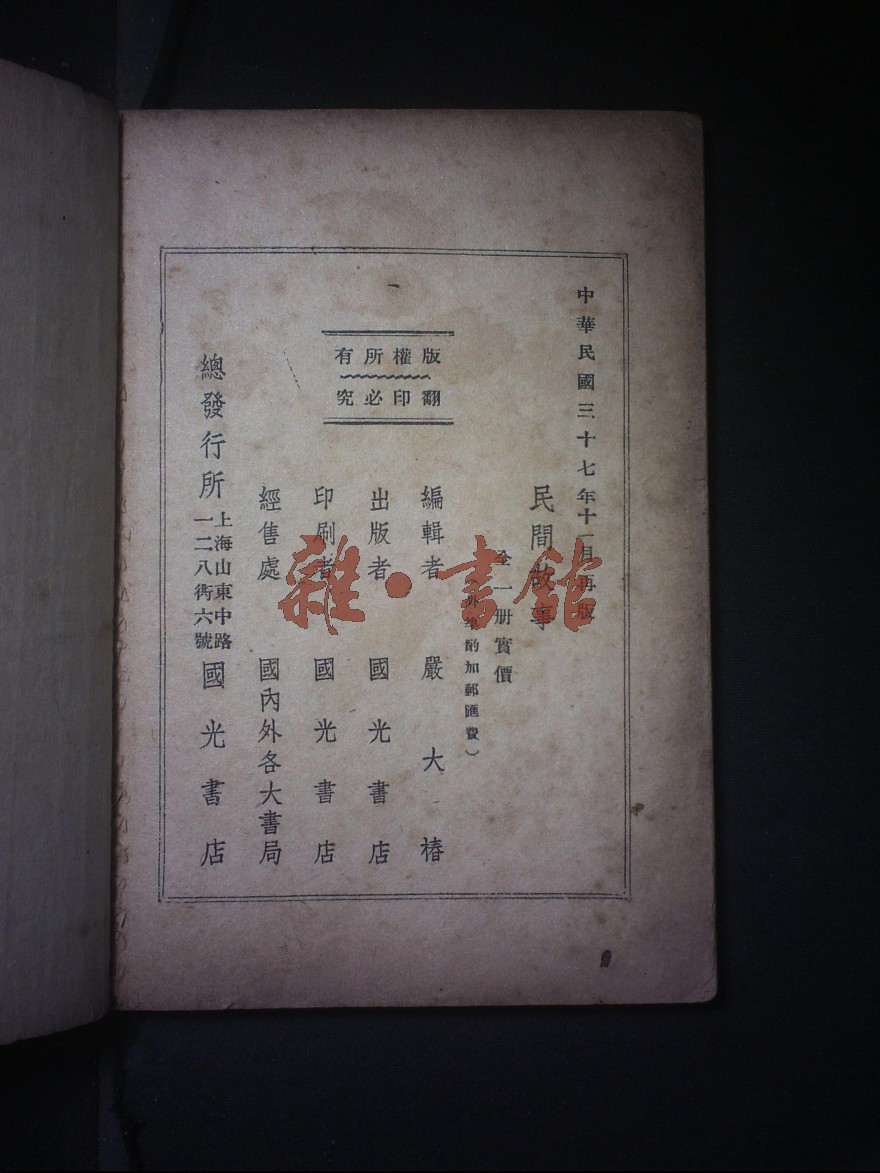 中華民國三十七年十一月再版
民間故事
全一册實價
(外埠酌加郵匯費)
版權所有
翻印必究
編輯者 嚴大椿
出版者 國光書店
印刷者 國光書店
經售處 國內外各大書局
總發行所 上海山東中路
一二八衖六號 國光書店
雜·書館